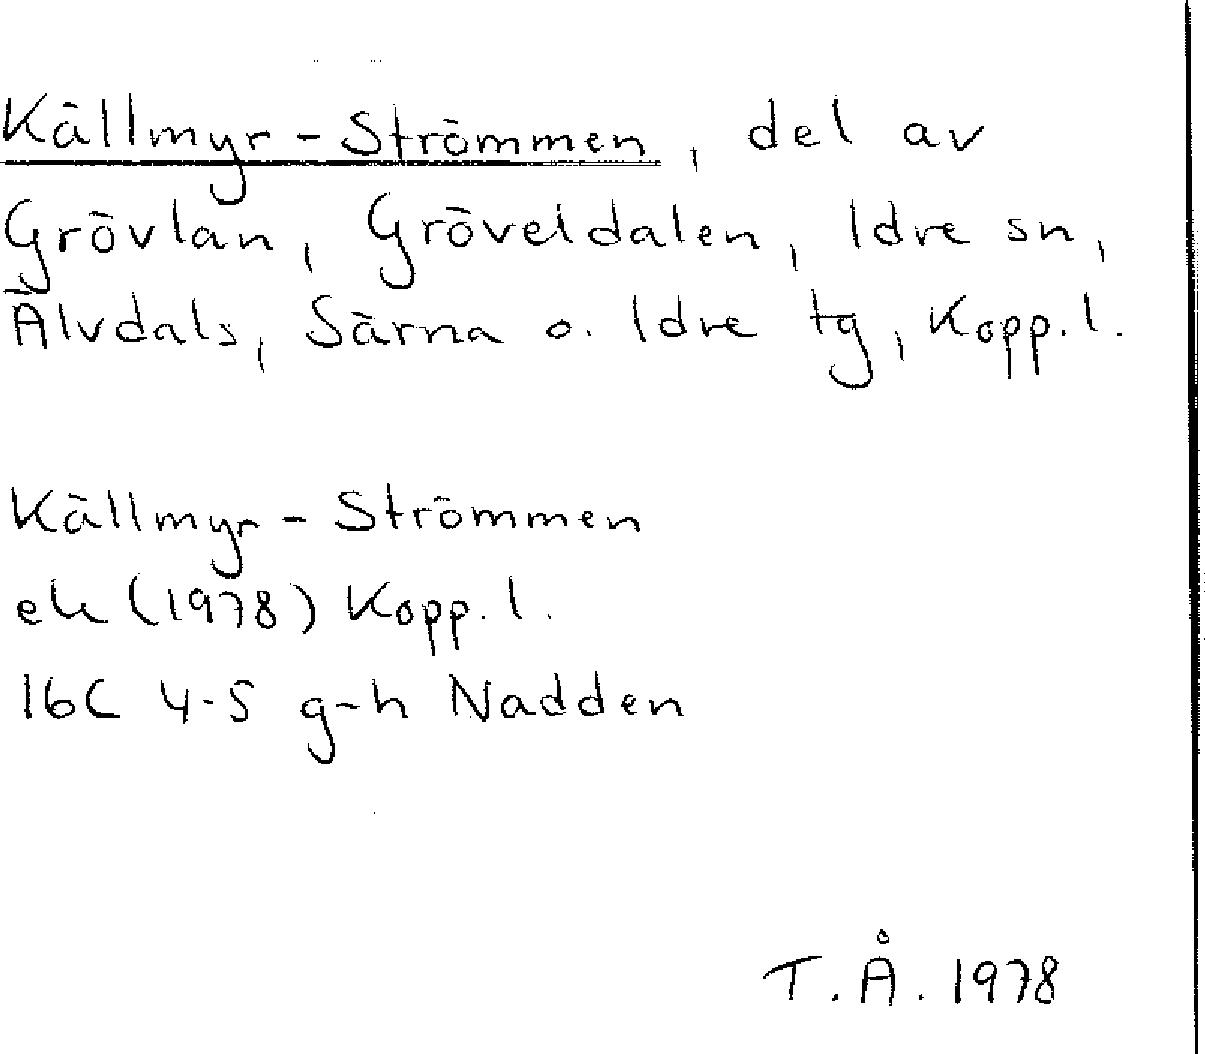 Källmyr-Strömmen, del av
Grövlan, Gröveldalen, Idre sn,
Älvdals, Särna o. Idre tg, Kopp.l.
Källmyr-Strömmen
ek (1978) Kopp.l.
16C 4-5 g-h Nadden
T.Å. 1978